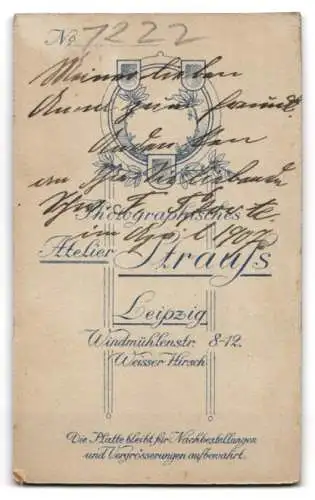 No. 7222
Meiner lieben
Anna zum freundl.
Andenken
an Ihre Sie liebende
im April 1907
Photographisches
Atelier Strauss
Leipzig
Windmühlenstr. 8-12.
Weisser Hirsch
Die Platte bleibt für Nachbestellungen
und Vergrösserungen aufbewahrt.